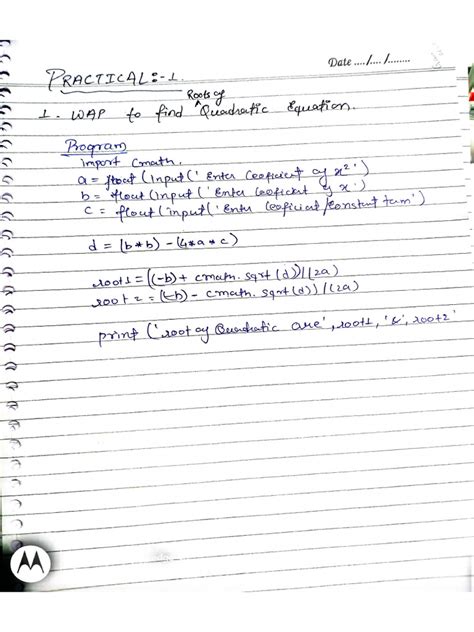 Date ..../..../........
PRACTICAL:-1.
Roots of
1. WAP to find ^ Quadratic Equation.
Program
import cmath.
a = float (Input (' Enter Coeficient of x²')
b = float (Input (' Enter Coeficient of x')
c = float ('input (' Enter Coeficient/constant term')
d = (b*b) - (4*a*c)
root1 = ((-b) + cmath. sqrt (d)) / (2a)
root 2 = (-b) - cmath. sqrt (d)) / (2a)
print ('root of Quadratic are', root1, '&', root2'